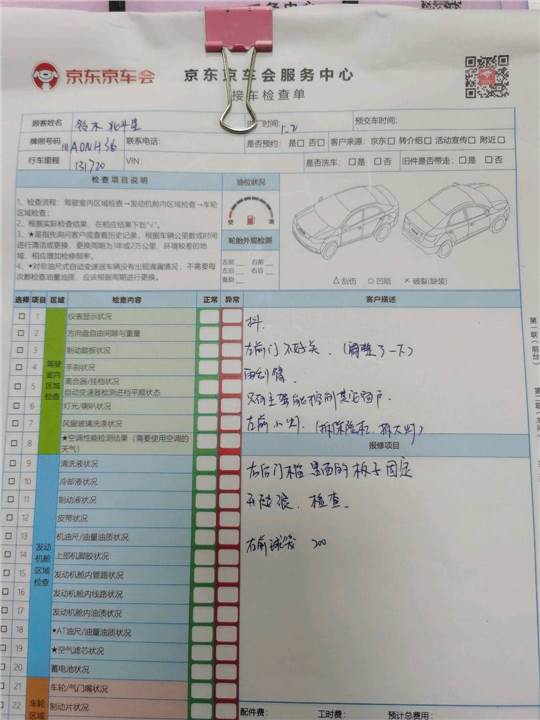 京东京车会
京东京车会服务中心
接车检查单
顾客姓名 铃木 北斗星
厂时间：
预交车时间：
牌照号码
联系电话：
是否预约：是 否
客户来源：京东 转介绍 活动宣传 附近
行车里程 131720
VIN：
是否洗车：是 否
旧件是否带走：是 否
检查项目说明
油位状况
1、检查流程：驾驶室内区域检查→发动机舱内区域检查→车轮
区域检查；
2、根据实际检查结果，在相应结果下划“√”。
3、★是指先询问客户或查看历史记录，根据车辆公里数或时间
进行清洁或更换，更换周期为1年或2万公里，环境较差的地
域，相应增加检修频率。
4、•对非油尺式自动变速器车辆没有出现泄漏情况，不需要每
次都检查油量油质，应该根据周期进行更换。
空 满
轮胎外观检测
左前 右前
左后 右后
备胎
△ 刮伤 ○ 凹陷 × 破裂(缺装)
选择 项目 区域 检查内容 正常 异常 客户描述
驾驶室内区域检查
1 仪表显示状况
2 方向盘自由间隙与重量
3 制动踏板状况
4 手刹状况
5 离合器/挂档状况
自动变速器检测进档平顺状态
6 灯光/喇叭状况
7 风窗玻璃清洗状况
8 ★空调性能检测结果（需要使用空调的
天气）
抖.
左前门不好关.（调整了一下）
雨刮臂
左前小灯.
报修项目
发动机舱区域检查
9 清洗液状况
10 冷却液状况
11 制动液状况
12 皮带状况
13 机油尺/油量油质状况
14 上部机脚胶状况
15 发动机舱内管路状况
16 发动机舱内线路状况
17 发动机舱内油质状况
18 •AT油尺/油量油质状况
19 ★空气滤芯状况
20 蓄电池状况
左后门褶里面的板子固定
检查.
右前球笼 200
车轮区域
21 车轮/气门嘴状况
22 制动片状况
配件费： 工时费： 预计总费用：
第一联（前台）